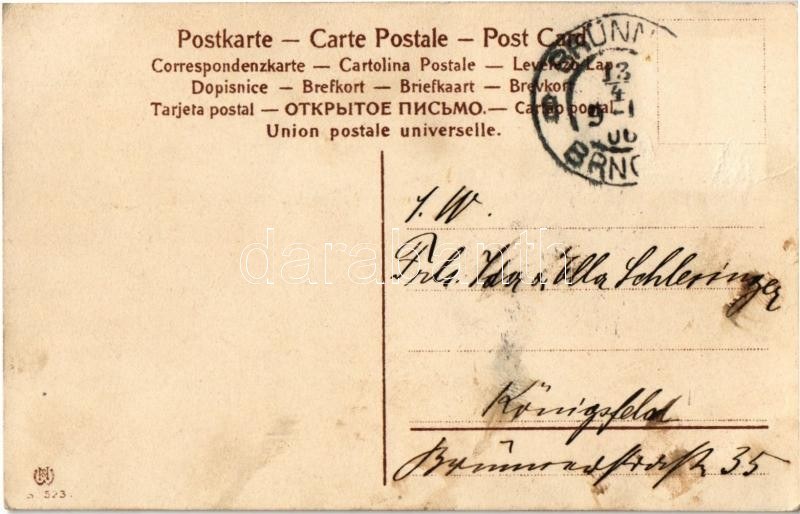 Postkarte — Carte Postale — Post Card
BRÜNN
Correspondenzkarte — Cartolina Postale — Levelező-Lap
13
Dopisnice — Brefkort — Briefkaart — Brevkort
4
Tarjeta postal — ОТКРЫТОЕ ПИСЬМО. — Cartao postal.
9-1
06
Union postale universelle.
BRNO
S. W.
darabanth
Frls. Ida u. Olla Schlesinger
Königsfeld
Brünnerstraße 35
523